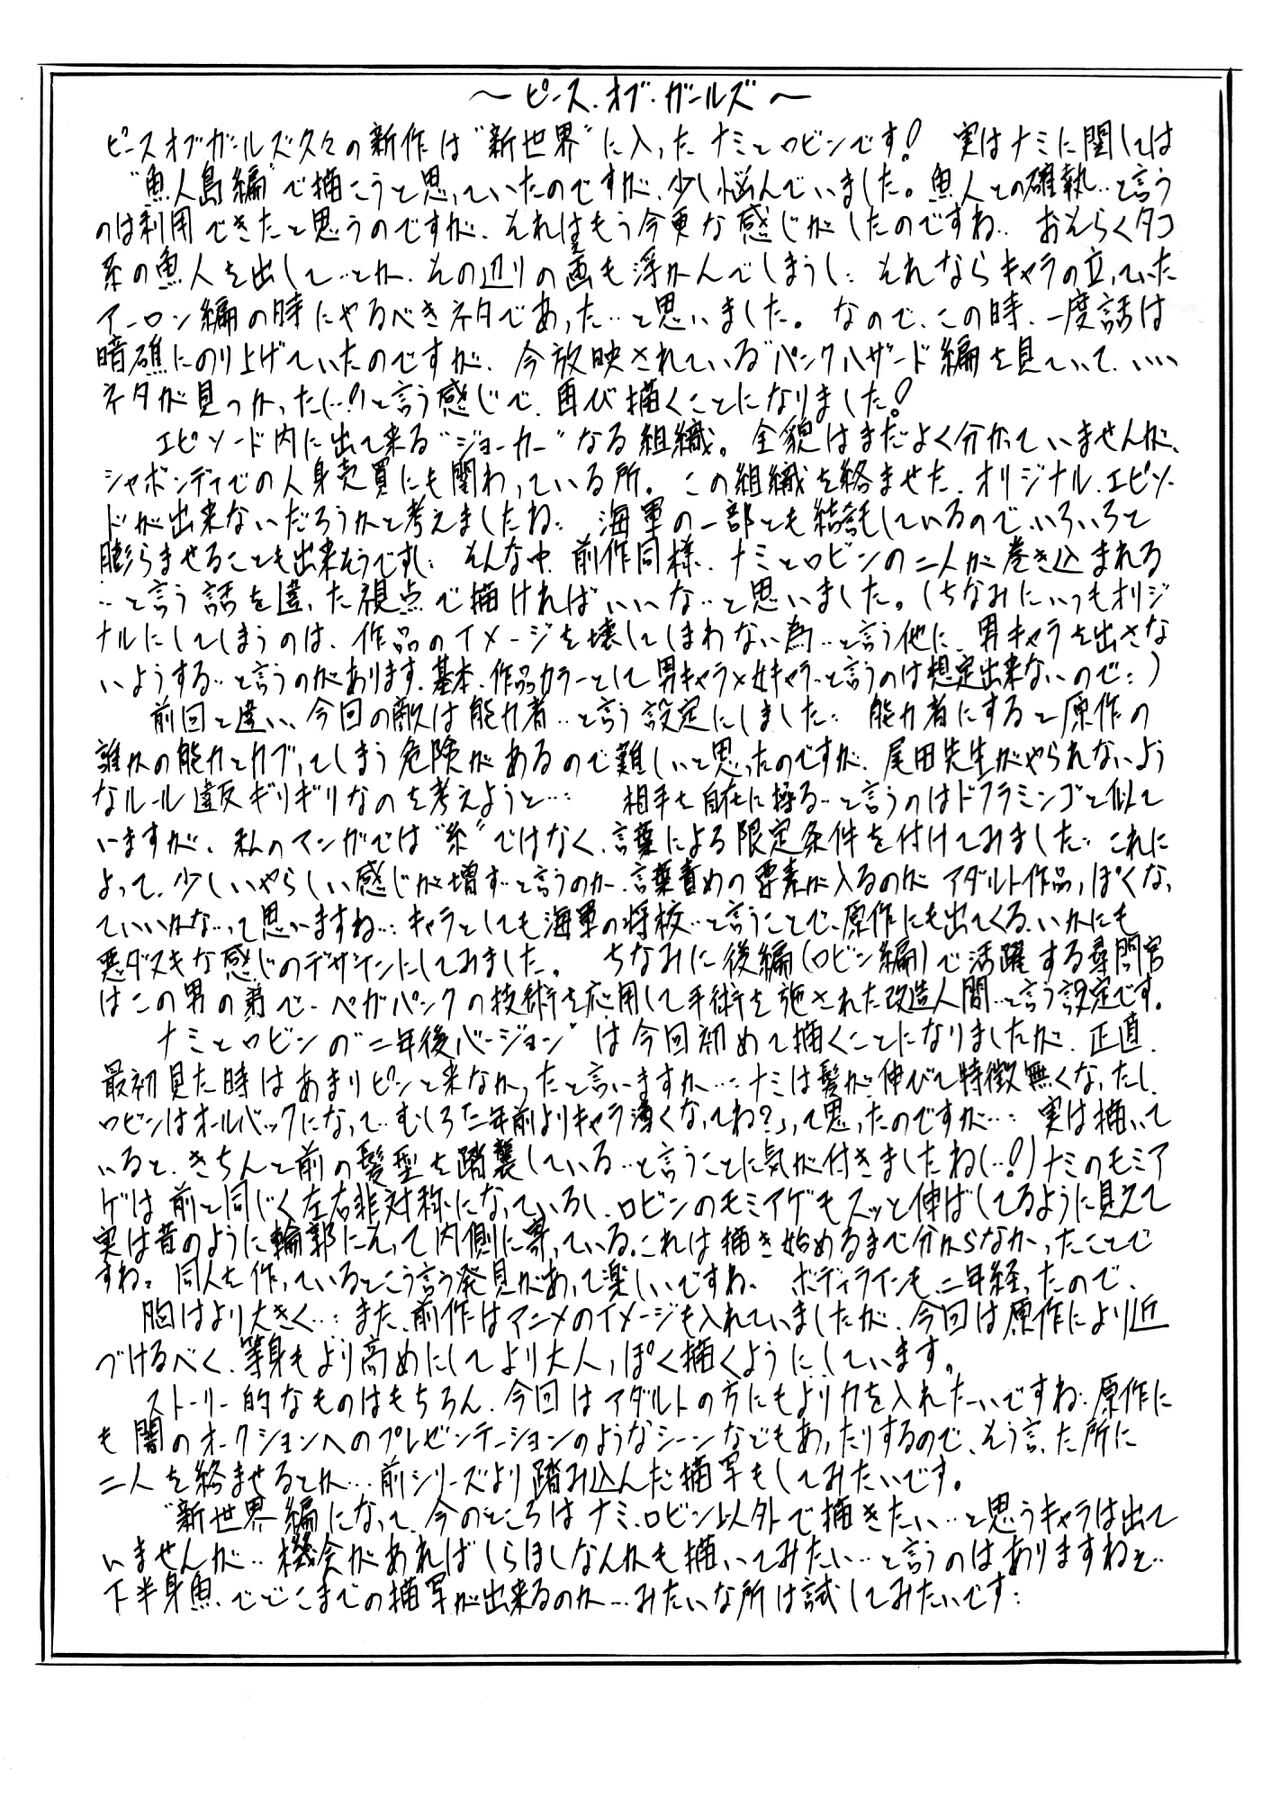 ～ピース・オブ・ガールズ～
ピースオブガールズ久々の新作は“新世界”に入った ナミとロビンです! 実はナミに関しては
“魚人島編”で描こうと思っていたのですが、少し悩んでいました。魚人との確執…と言う
のは利用できたと思うのですが、それはもう今更な感じがしたのですね… おそらくタコ
系の魚人を出して…とか、その辺りの画も浮かんでしまうし… それならキャラの立っていた
アーロン編の時にやるべきネタであった…と思いました。なので、この時、一度話は
暗礁にのり上げていたのですが、今放映されている“パンクハザード編を見ていて、いい
ネタが見つかった(…!)と言う感じで、再び描くことになりました!
エピソード内に出て来る“ジョーカー”なる組織。全貌はまだよく分かっていませんが、
シャボンディでの人身売買にも関わっている所。この組織を絡ませた、オリジナル、エピソー
ドが出来ないだろうかと考えましたね… 海軍の一部とも結託しているので、いろいろと
膨らませることも出来そうですし… そんな中、前作同様、ナミとロビンの二人が巻き込まれる
…と言う話を違った視点で描ければいいな…と思いました。(ちなみにいつもオリジ
ナルにしてしまうのは、作品のイメージを壊してしまわない為…と言う他に、男キャラを出さな
いようする…と言うのがあります。基本、作品カラーとして男キャラ×女キャラ…と言うのは想定出来ないので…)
前回と違い、今回の敵は能力者…と言う設定にしました… 能力者にすると原作の
誰かの能力とカブってしまう危険があるので難しいと思ったのですが、尾田先生がやられないよう
なルール違反ギリギリなのを考えようと…… 相手を自在に操る…と言うのはドフラミンゴと似て
いますが、私のマンガでは“糸”ではなく、言葉による限定条件を付けてみました… これに
よって、少しいやらしい感じが増す…と言うのか、言葉責めの要素が入るのが アダルト作品っぽくなっ
ていいかな…って思いますね… キャラとしても海軍の将校…と言うことで、原作にも出てくる、いかにも
悪ダヌキな感じのデザインにしてみました。ちなみに後編(ロビン編)で活躍する尋問官
はこの男の弟で、ベガパンクの技術を応用して手術を施された改造人間…と言う設定です。
ナミとロビンの“二年後バージョン”は今回初めて描くことになりましたが、正直、
最初見た時はあまりピンと来なかったと言いますか…… ナミは髪が伸びて特徴無くなったし、
ロビンはオールバックになって、むしろ「二年前よりキャラ薄くなってね?」って思ったのですが…… 実は描いて
いると、きちんと前の髪型を踏襲している…と言うことに気が付きましたね(…!)ナミのモミア
ゲは前と同じく左右非対称になっているし、ロビンのモミアゲもスッと伸ばしてるように見えて
実は昔のように輪郭にそって内側に寄っている。これは描き始めるまで分からなかったことで
すね。同人を作っているとこう言う発見があって楽しいですね、ボディラインも、二年経ったので、
胸はより大きく…… また、前作はアニメのイメージも入れていましたが、今回は原作により近
づけるべく、等身もより高めにしてより大人っぽく描くようにしています。
ストーリー的なものはもちろん、今回はアダルトの方にもより力を入れたーいですね… 原作に
も闇のオークションへのプレゼンテーションのようなシーンなどもあったりするので、そう言った所に
二人を絡ませるとか… 前シリーズより踏み込んだ描写もしてみたいです。
“新世界”編になって、今のところはナミ、ロビン以外で描きたい…と思うキャラは出て
いませんが… 機会があればしらほしなんかも描いてみたい…と言うのはありますねぇ…
下半身魚、でどこまでの描写が出来るのか…みたいな所は試してみたいです…